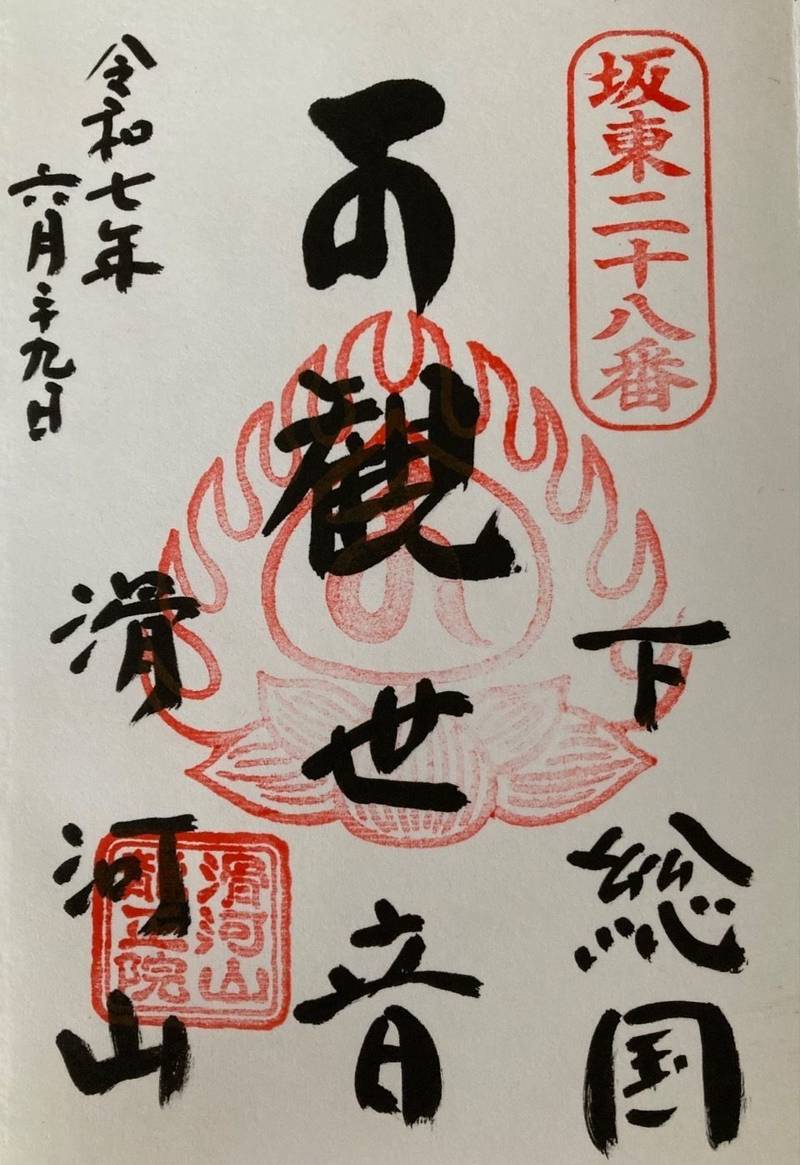 坂東二十八番
下総国
観世音
滑河山
滑河山
龍正院
令和七年
六月二十九日